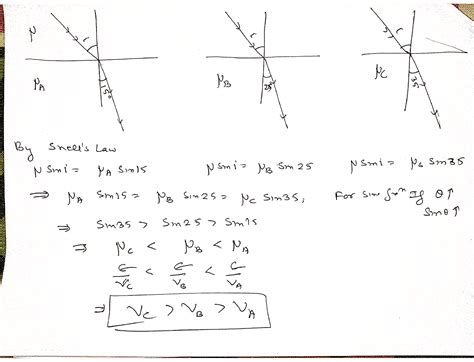 μ i i i
μA 15° μB 25 μC 35
By Snell's Law
μ Sin i = μA Sin15 μ Sin i = μB Sin 25 μ Sin i = μc Sin35
⇒ μA Sin15 = μB Sin25 = μC Sin35, For sin fxⁿ If θ↑
Sinθ↑
⇒ Sin35 > Sin25 > Sin15
⇒ μC < μB < μA
C/VC < C/VB < C/VA
⇒ VC > VB > VA